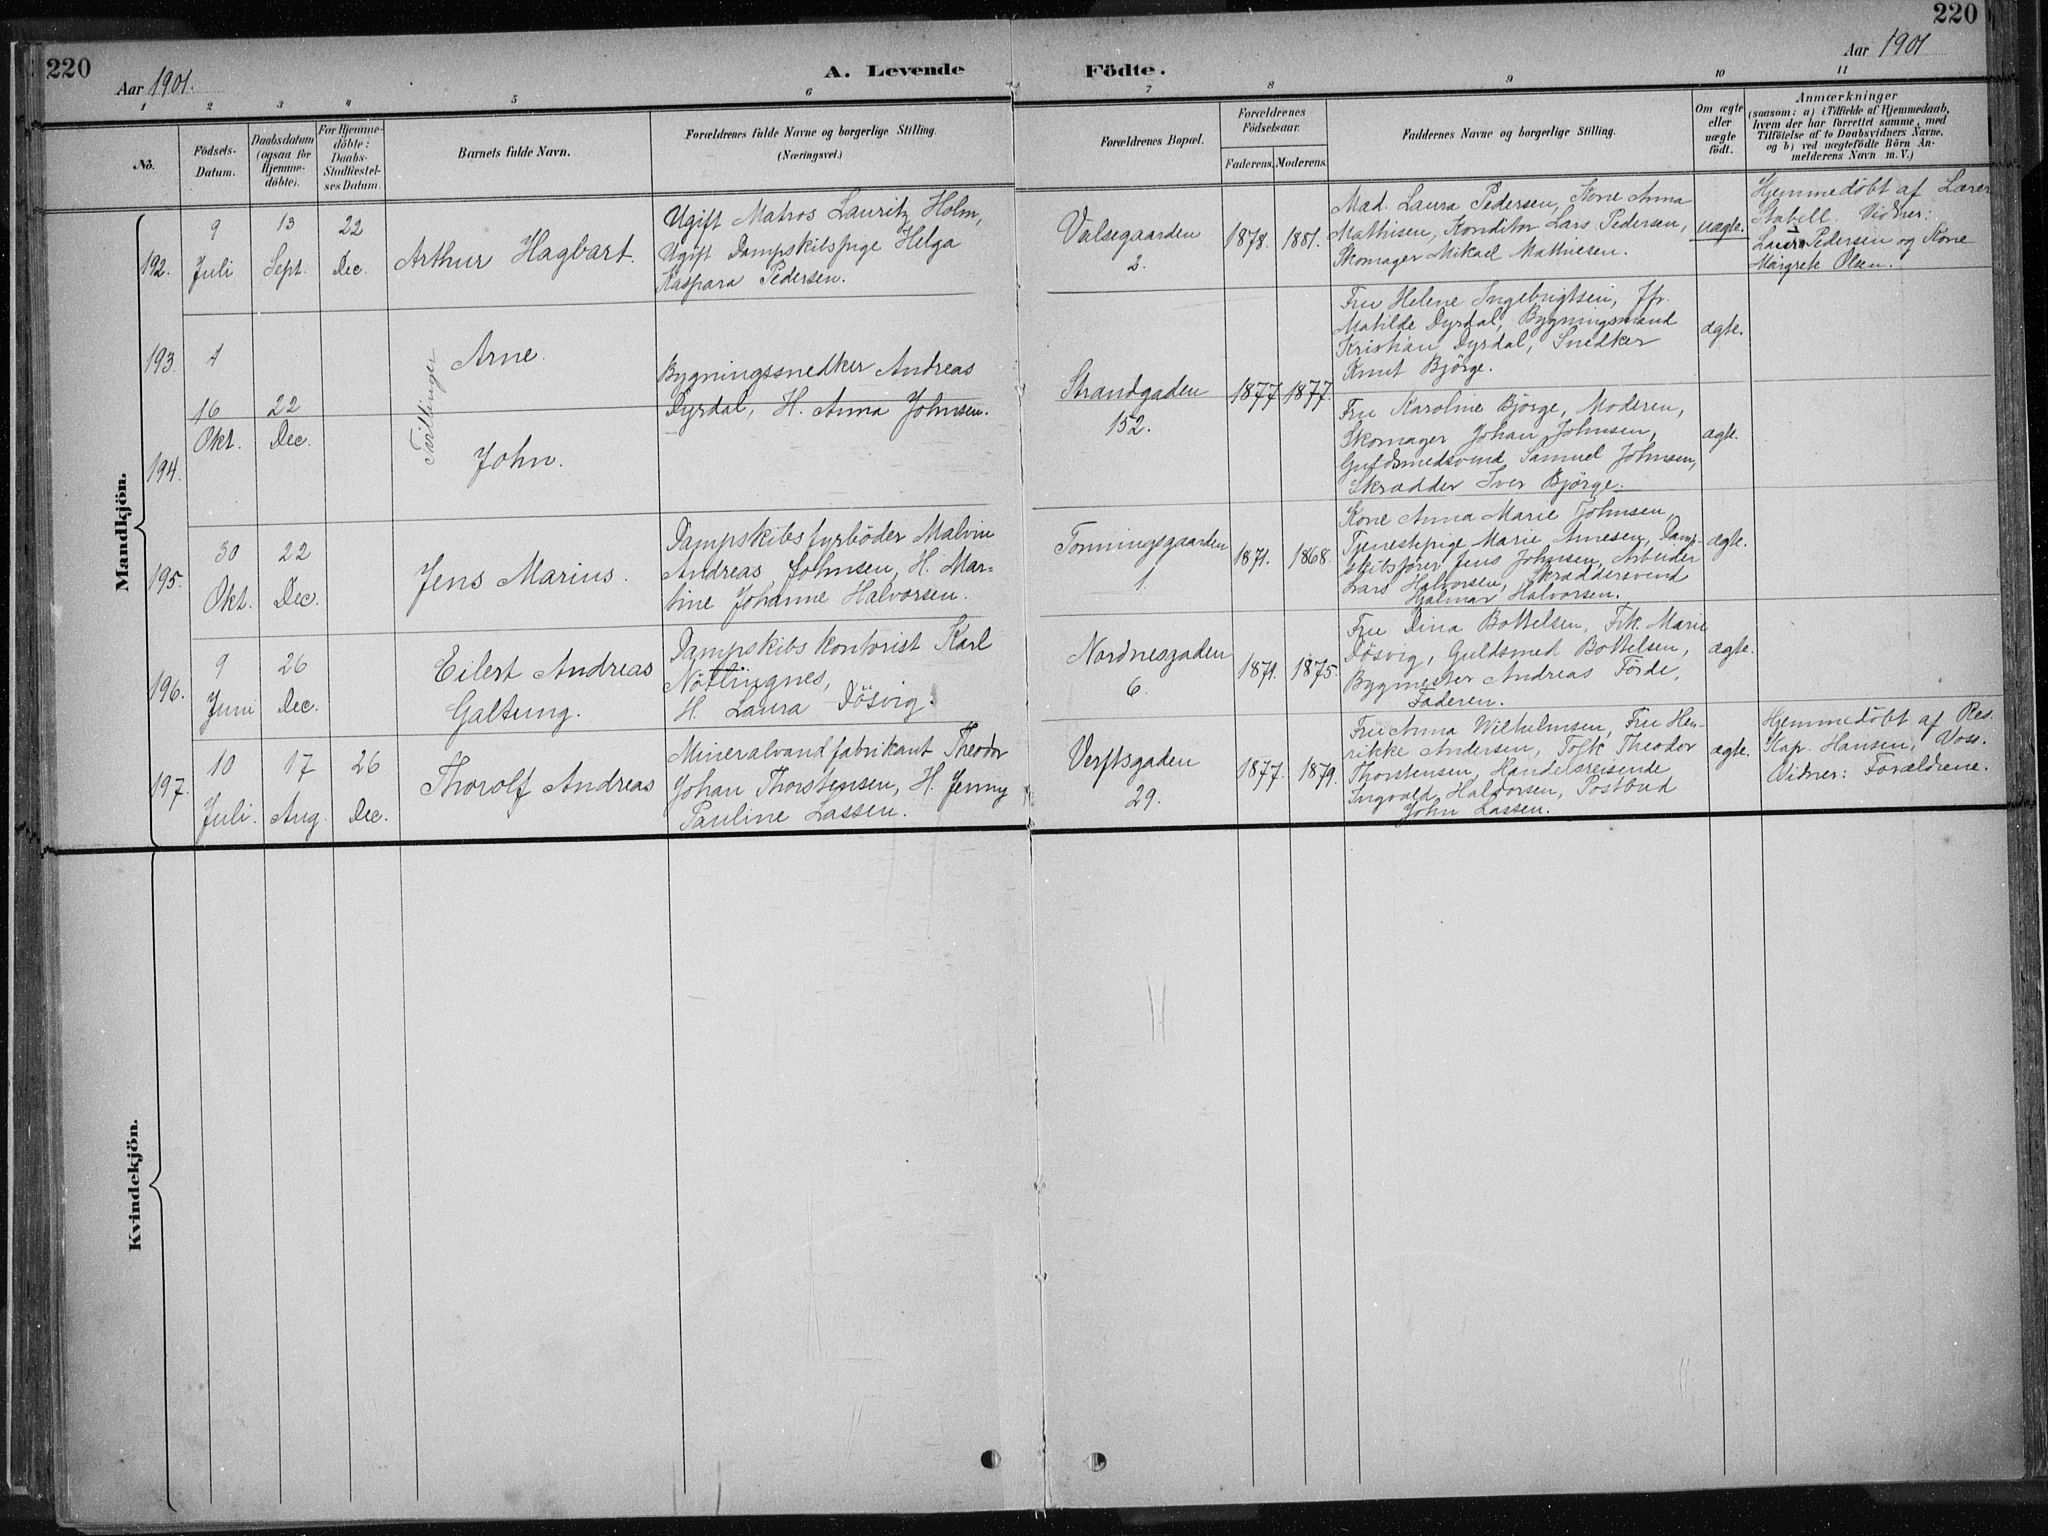 220
Aar 1901.
A. Levende Födte.
Aar 1901
220
1 2 3 4 5 6 7 8 9 10 11
No.
Födsels-
Datum.
Daabsdatum
(ogsaa for
Hjemme-
döbte).
For Hjemme-
döbte:
Daabs-
Stadfæstel-
ses Datum.
Barnets fulde Navn.
Forældrenes fulde Navne og borgerlige Stilling.
(Næringsvei.)
Forældrenes Bopæl.
Forældrenes
Födselsaar.
Faderens. Moderens.
Faddernes Navne og borgerlige Stilling.
Om ægte
eller
uægte
født.
Anmærkninger
(saasom: a) i Tilfælde af Hjemmedaab,
hvem der har forrettet samme, med
Tilföielse af to Daabsvidners Navne,
og b) ved uægtefödte Börn An-
melderens Navn m. V.)
Mandkjön.
192.
9
Juli
13
Sept.
22
Dec.
Arthur Hagbart.
Ugift Matros Lauritz Holm,
Ugift Dampskibspige Helga
Kaspara Pedersen.
Valsegaarden
2.
1878. 1881.
Mad. Laura Pedersen, Kone Anna
Mathisen, Konditor Lars Pedersen,
Skomager Mikael Mathiesen.
uægte.
Hjemmedöbt af Lærer
Stabell. Vidner:
Laura Pedersen og Kone
Margrete Olsen.
193.
Tvillinger
Arne.
Bygningssnedker Andreas
Dyrdal, H. Anna Johnsen.
16
Okt.
22
Dec.
Strandgaden
152.
1877 1877.
Fru Helene Ingebrigtsen, Jfr.
Matilde Dyrdal, Bygningsmand
Kristian Dyrdal, Snedker
Knut Björge.
ægte.
194.
John.
Fru Karoline Björge, Moderen,
Skomager Johan Johnsen,
Guldsmedsvend Samuel Johnsen,
Skrædder Iver Björge.
ægte.
195.
30
Okt.
22
Dec.
Jens Marius.
Dampskibsfyrböder Malvin
Andreas Johnsen, H. Mar-
tine Johanne Halvorsen.
Tonningsgaarden
1.
1871. 1868.
Kone Anna Marie Johnsen,
Tjenestepige Marie Arnesen, Damp-
skibsförer Jens Johnsen, Arbeider
Lars Halvorsen, Skræddersvend
Hjalmar Halvorsen.
ægte.
196.
9
Juni
26
Dec.
Eilert Andreas
Galtung.
Dampskibskontorist Karl
Nötlingnes,
H. Laura Dösvig.
Nordnesgaden
6.
1871. 1875.
Fru Dina Bottelsen, Frk. Marie
Dösvig, Guldsmed Bottelsen,
Bygmester Andreas Förde,
Faderen.
ægte.
197.
10
Juli.
17
Aug.
26
Dec.
Thorolf Andreas
Mineralvandfabrikant Theodor
Johan Thorstensen, H. Jenny
Pauline Lassen.
Verftsgaden
29.
1877. 1879.
Fru Anna Wilhelmsen, Fru Hen-
rikke Andersen, Tolk Theodor
Thorstensen, Handelsreisende
Ingvald Halvorsen, Postbud
John Lassen.
ægte.
Hjemmedöbt af Res.
Kap. Hansen, Voss.
Vidner: Forældrene.
Kvindekjön.